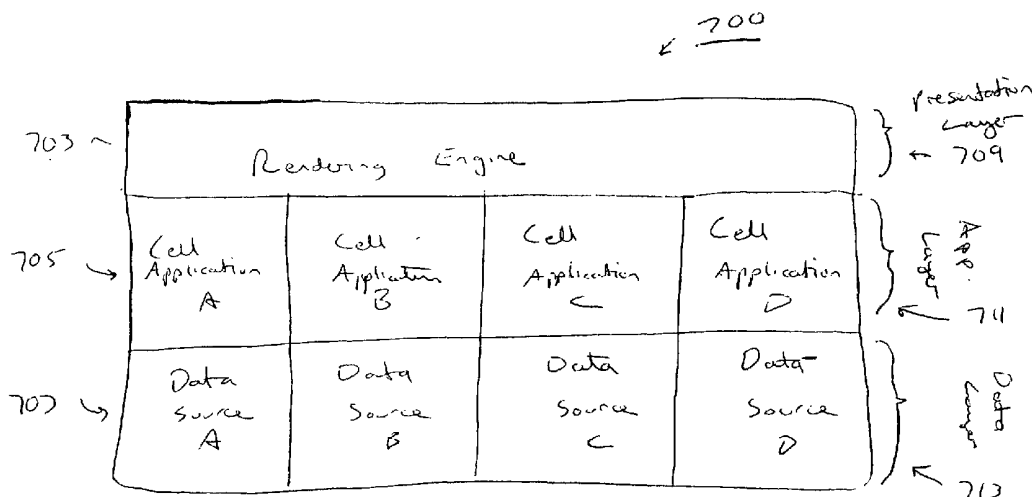 700
Presentation
Layer
703
Rendering Engine
709
705
Cell
Application
A
Cell
Application
B
Cell
Application
C
Cell
Application
D
App.
Layer
711
707
Data
Source
A
Data
Source
B
Data
Source
C
Data
Source
D
Data
Layer
713